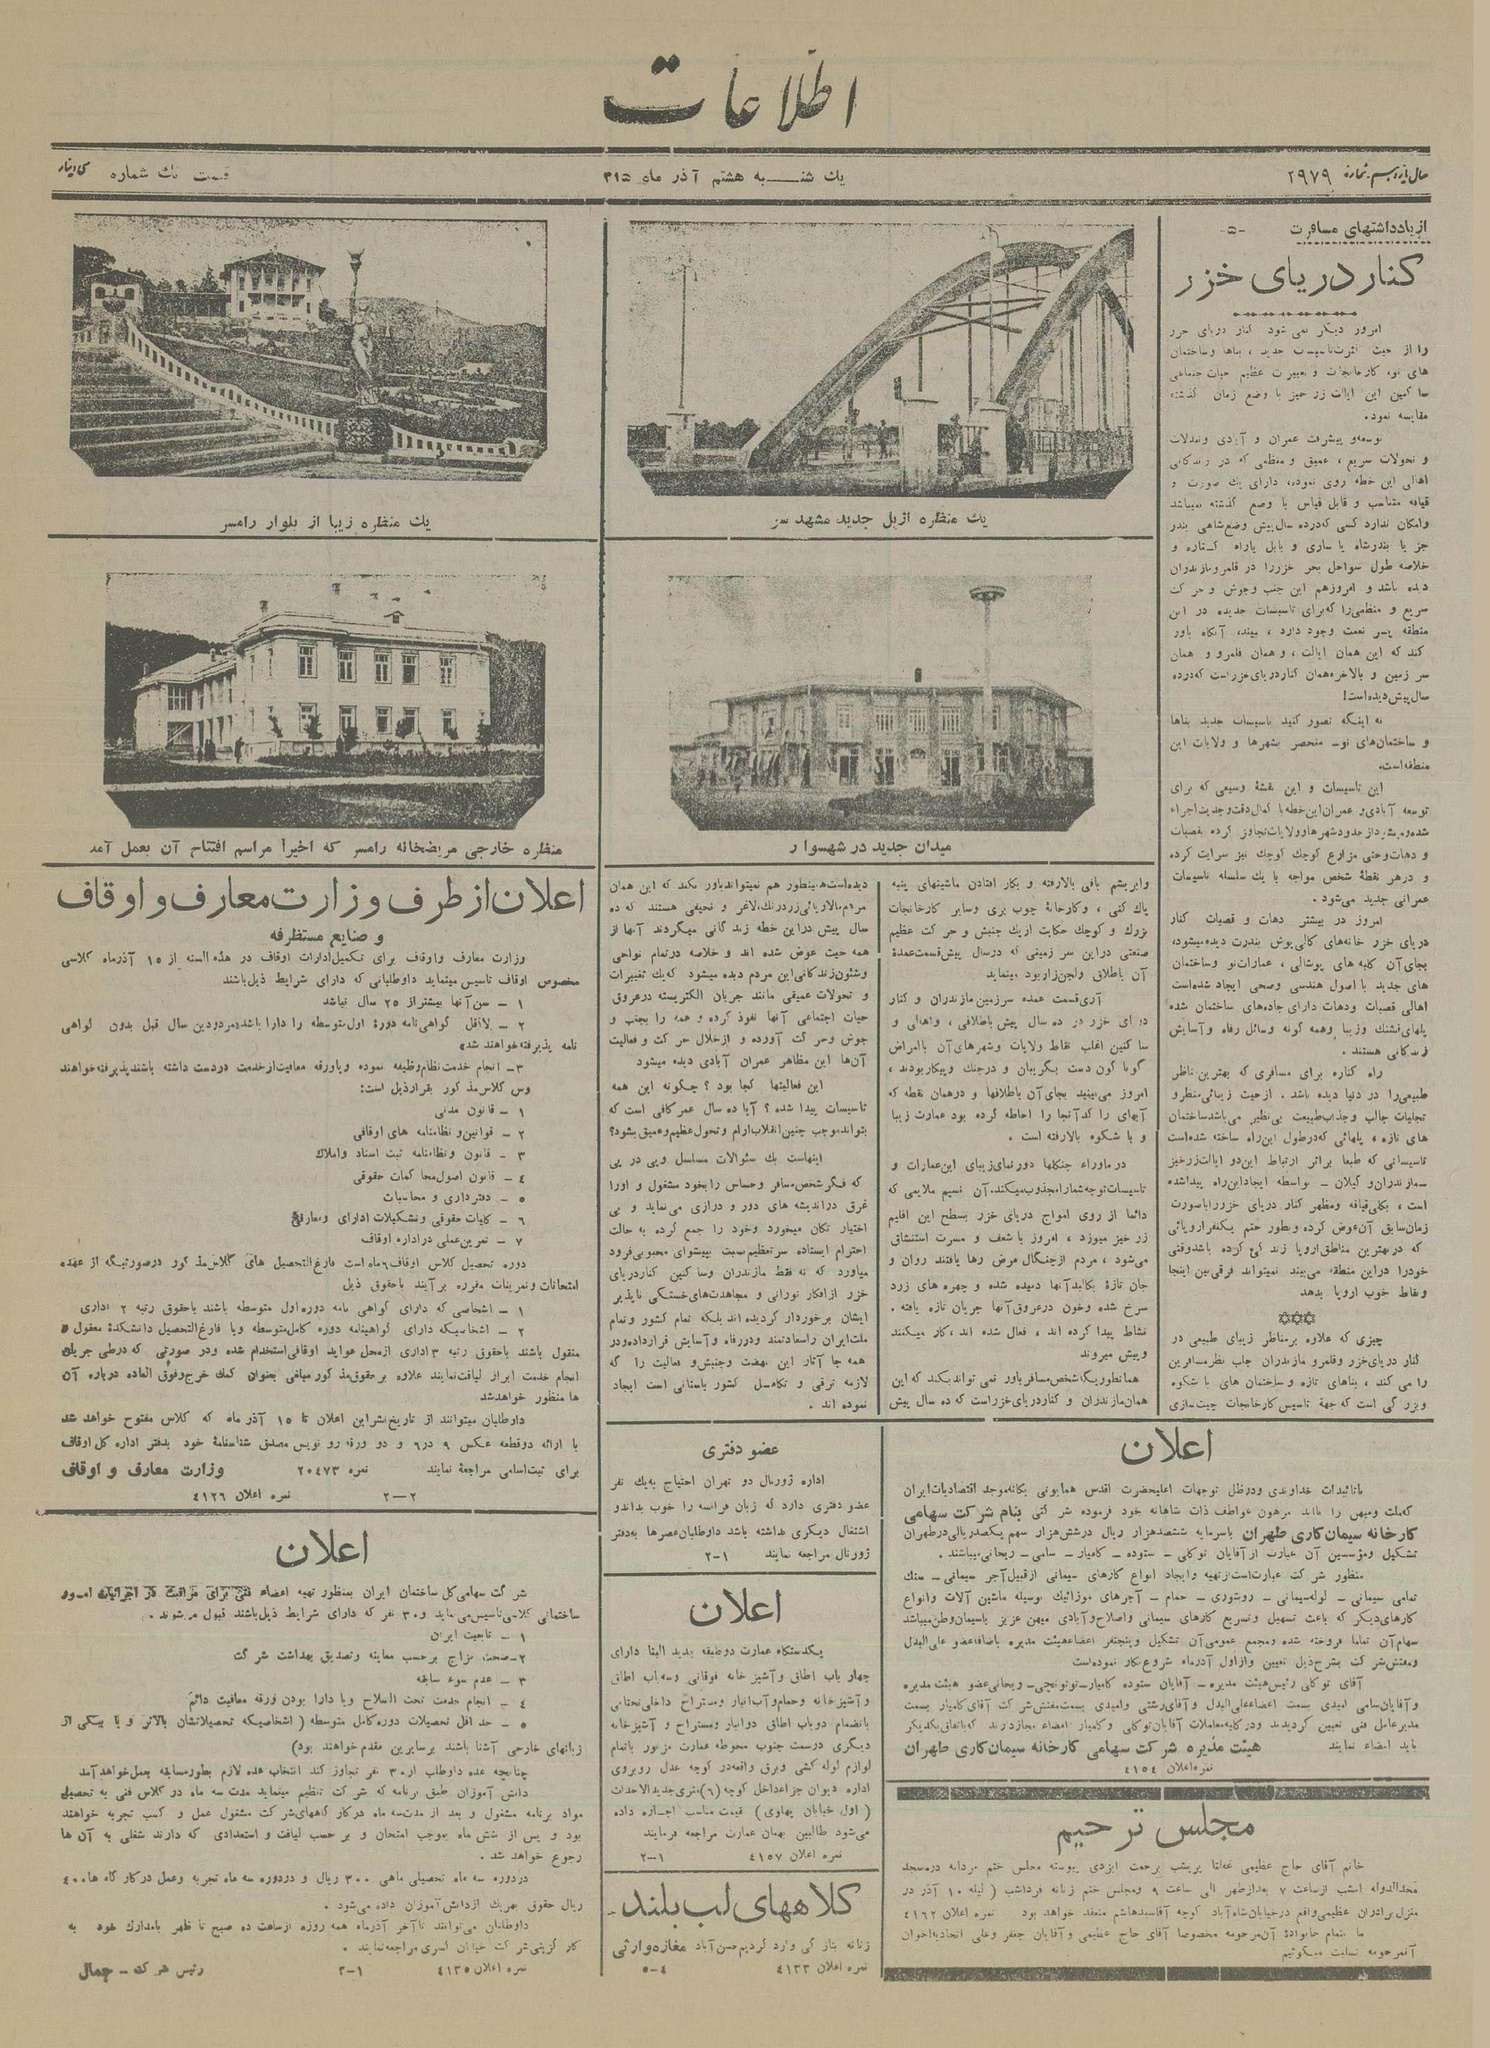 اطلاعات
سال یازدهم شماره ۲۹۷۹
یك شنبه هشتم آذر ماه ۳۱۵
قیمت تك شماره سی دینار
از یادداشتهای مسافرت -۵-
کنار دریای خزر
امروز دیگر نمی شود کنار دریای خزر
را از حیث کثرت تاسیسات جدید ، بناها و ساختمان
های نو، کارخانجات و تغییرات عظیم حیات اجتماعی
ساکنین این ایالت زرخیز با وضع زمان گذشته
مقایسه نمود.
توسعه و پیشرفت عمران و آبادی و تبدلات
و تحولات سریع ، عمیق و منظمی که در زندگانی
اهالی این خطه روی نموده، دارای یك صورت و
قیافه متناسب و قابل قیاس با وضع گذشته نمیباشد
و امکان ندارد کسی که درده سال پیش وضع شاهی بندر
جز یا بندرشاه یا ساری و بابل یا راه کناره و
خلاصه طول سواحل بحر خزر را در قلمرو مازندران
دیده باشد و امروز هم این جنب و جوش و حرکت
سریع و منظمی را که برای تاسیسات جدیده در این
منطقه پر نعمت وجود دارد ، ببیند، آنگاه باور
کند که این همان ایالت ، و همان قلمرو و همان
سر زمین و بالاخره همان کنار دریای خزر است که درده
سال پیش دیده است!
نه اینکه تصور کنید تاسیسات جدید بناها
و ساختمان‌های نو- منحصر بشهرها و ولایات این
منطقه است.
این تاسیسات و این نقشهٔ وسیعی که برای
توسعه آبادی و عمران این خطه با کمال دقت و جدیت اجراء
شده و میشود از حدود شهرها و ولایات تجاوز کرده بقصبات
و دهات و حتی مزارع کوچك کوچك نیز سرایت کرده
و در هر نقطهٔ شخص مواجه با یك سلسله تاسیسات
عمرانی جدید می‌شود .
امروز در بیشتر دهات و قصبات کنار
دریای خزر خانه‌های گالی پوش بندرت دیده میشود،
بجای آن کلبه های پوشالی ، عمارات نو و ساختمان
های جدید با اصول هندسی و صحی ایجاد شده است
اهالی قصبات و دهات دارای جاده‌های ساختمان شده
پلهای قشنگ و زیبا و همه گونه وسائل رفاه و آسایش
زندگانی هستند .
راه کناره برای مسافری که بهترین مناظر
طبیعی را در دنیا دیده باشد . از حیث زیبائی منظر و
تجلیات جالب و جذب طبیعت بی نظیر می باشد ساختمان
های تازه ، پلهائی که در طول این راه ساخته شده است
تاسیساتی که طبعا براثر ارتباط این دو ایالت زرخیز
-مازندران و گیلان - بواسطه ایجاد این راه پیدا شده
است ، بکلی قیافه و مظهر کنار دریای خزر را بصورت
زمان سابق آن عوض کرده و بطور حتم یکنفر اروپائی
که در بهترین مناطق اروپا زندگی کرده باشد وقتی
خود را در این منطقه می بیند نمیتواند فرقی بین اینجا
و نقاط خوب اروپا بدهد
چیزی که علاوه بر مناظر زیبای طبیعی در
کنار دریای خزر و قلمرو مازندران جلب نظر مسافرین
را می کند ، بناهای تازه و ساختمان های با شکوه
و بزرگی است که جهة تاسیس کارخانجات چیت سازی
یك منظره از پل جدید مشهد سر
یك منظره زیبا از بلوار رامسر
میدان جدید در شهسوار
منظره خارجی مریضخانه رامسر که اخیراً مراسم افتتاح آن بعمل آمد
و ابریشم بافی بالا رفته و بکار افتادن ماشینهای پنبه
پاك کنی ، و کارخانهٔ چوب بری و سایر کارخانجات
بزرك و کوچك حکایت از یك جنبش و حرکت عظیم
صنعتی در این سر زمینی که درسال پیش قسمت عمدهٔ
آن باطلاق و لجن زار بود مینماید
آری قسمت عمده سرزمین مازندران و کنار
دریای خزر در ده سال پیش باطلاقی ، و اهالی و
ساکنین اغلب نقاط ولایات و شهرهای آن با امراض
گوناگون دست بگریبان و در جنك و پیکار بودند ،
امروز می‌بینید بجای آن باطلاقها و در همان نقطه که
آبهای را کد آنجا را احاطه کرده بود عمارت زیبا
و با شکوه بالا رفته است .
در ماوراء جنگلها دورنمای زیبای این عمارات و
تاسیسات توجه شما را مجذوب میکند. آن نسیم ملایمی که
دائما از روی امواج دریای خزر بسطح این اقلیم
زرخیز میوزد ، امروز با شعف و مسرت استنشاق
می‌شود ، مردم از چنگال مرض رها یافتند روان و
جان تازهٔ بکالبد آنها دمیده شده و چهره های زرد
سرخ شده و خون در عروق آنها جریان تازه یافته .
نشاط پیدا کرده اند ، فعال شده اند ، کار میکنند
و پیش میروند
همانطوریکه شخص مسافر باور نمی تواند بکند که این
همان مازندران و کنار دریای خزر است که ده سال پیش
دیده است همینطور هم نمیتواند باور بکند که این همان
مردم مالاریائی زرد رنك، لاغر و نحیفی هستند که ده
سال پیش در این خطه زندگانی میکردند آنها از
همه حیث عوض شده اند و خلاصه در تمام نواحی
و شئون زندگانی این مردم دیده میشود که یك تغییرات
و تحولات عمیقی مانند جریان الکتریسته در عروق
حیات اجتماعی آنها نفوذ کرده و همه را بجنب و
جوش و حرکت آورده و از خلال حرکت و فعالیت
آن‌ها این مظاهر عمران آبادی دیده میشود
این فعالیتها کجا بود ؟ چگونه این همه
تاسیسات پیدا شده ؟ آیا ده سال عمر کافی است که
بتواند موجب چنین انقلاب آرام و تحول عظیم و عمیق بشود؟
اینهاست یك سئوالات مسلسل و پی در پی
که فکر شخص مسافر و حساس را بخود مشغول و اورا
غرق در اندیشه های دور و درازی می نماید و بی
اختیار تکان میخورد و خود را جمع کرده به حالت
احترام ایستاده سر تعظیم نسبت بپیشوای محبوبی فرود
میاورد که نه فقط مازندران و ساکنین کنار دریای
خزر از افکار نورانی و مجاهدت‌های خستگی ناپذیر
ایشان برخوردار گردیده اند بلکه تمام کشور و تمام
ملت ایران را سعادتمند و در رفاه و آسایش قرار داده و در
همه جا آثار این نهضت و جنبش و فعالیت را که
لازمه ترقی و تکامل کشور باستانی است ایجاد
نموده اند .
اعلان از طرف وزارت معارف و اوقاف
و صنایع مستظرفه
وزارت معارف و اوقاف برای تکمیل ادارات اوقاف در هذه السنه از ۱۵ آذرماه کلاسی
مخصوص اوقاف تاسیس مینماید داوطلبانی که دارای شرایط ذیل باشند
۱ - سن آنها بیشتر از ۲۵ سال نباشد
۲ - لااقل گواهی نامه دورهٔ اول متوسطه را دارا باشند مردودین سال قبل بدون گواهی
نامه پذیرفته خواهند شد
۳- انجام خدمت نظام وظیفه نموده و یا ورقه معافیت از خدمت در دست داشته باشند پذیرفته خواهند
وس کلاس مذکور بقرار ذیل است:
۱ - قانون مدنی
۲ - قوانین و نظامنامه های اوقافی
۳ - قانون و نظامنامه ثبت اسناد و املاك
٤ - قانون اصول محاکمات حقوقی
۵ - دفترداری و محاسبات
۶ - کلیات حقوقی و تشکیلات اداری و معارفی
۷ - تمرین عملی در اداره اوقاف
دوره تحصیل کلاس اوقاف ۶ ماه است فارغ التحصیل های کلاس مذکور در صورتیکه از عهده
امتحانات و تمرینات مقرره برآیند با حقوق ذیل
۱ - اشخاصی که دارای گواهی نامه دوره اول متوسطه باشند با حقوق رتبه ۲ اداری
۲ - اشخاصیکه دارای گواهینامه دوره کامل متوسطه و یا فارغ التحصیل دانشکدهٔ معقول و
منقول باشند با حقوق رتبه ۳ اداری از محل عواید اوقافی استخدام شده و در صورتی که در طی جریان
انجام خدمت ابراز لیاقت نمایند علاوه بر حقوق مذکور مبلغی بعنوان کمك خرج و فوق العاده درباره آن
ها منظور خواهد شد
داوطلبان میتوانند از تاریخ نشر این اعلان تا ۱۵ آذر ماه که کلاس مفتوح خواهد شد
با ارائه دو قطعه عکس ۹ در ۶ و دو ورقه رو نویس مصدق شناسنامهٔ خود بدفتر اداره کل اوقاف
برای ثبت اسامی مراجعهٔ نمایند نمره ۲۰٤۷۳ وزارت معارف و اوقاف
۲-۲ نمره اعلان ٤۱۲۶
اعلان
شرکت سهامی کل ساختمان ایران بمنظور تهیه اعضاء فنی برای مراقبت در اجرائیات امور
ساختمانی کلاسی تاسیس می نماید و ۳۰ نفر که دارای شرایط ذیل باشند قبول میشوند .
۱ - تابعیت ایران
۲-صحت مزاج بر حسب معاینه و تصدیق بهداشت شرکت
۳ - عدم سوء سابقه
٤ - انجام خدمت تحت السلاح و یا دارا بودن ورقه معافیت دائم
۵ - حد اقل تحصیلات دوره کامل متوسطه ( اشخاصیکه تحصیلاتشان بالاتر و یا بیکی از
زبانهای خارجی آشنا باشند بر سایرین مقدم خواهند بود)
چنانچه عده داوطلب از ۳۰ نفر تجاوز کند انتخاب عده لازم بطور مسابقه بعمل خواهد آمد
دانش آموزان طبق برنامه که شرکت تنظیم مینماید مدت سه ماه در کلاس فنی به تحصیل
مواد برنامه مشغول و بعد از مدت سه ماه در کارگاههای شرکت مشغول عمل و کسب تجربه خواهند
بود و پس از شش ماه بموجب امتحان و بر حسب لیاقت و استعدادی که دارند شغلی به آن ها
رجوع خواهد شد .
در دوره سه ماه تحصیلی ماهی ۳۰۰ ریال و در دوره سه ماه تجربه و عمل در کارگاه ها ٤۰۰
ریال حقوق بهر یك از دانش آموزان داده می‌شود .
داوطلبان می‌توانند تا آخر آذرماه همه روزه از ساعت ده صبح تا ظهر با مدارك خود به
کارگزینی شرکت خیابان کسری مراجعه نمایند .
نمره اعلان ٤۱۳۵ ۳-۱ رئیس شرکت - جمال
عضو دفتری
اداره ژورنال دو تهران احتیاج به یك نفر
عضو دفتری دارد که زبان فرانسه را خوب بداند و
اشتغال دیگری نداشته باشد داوطلبان عصرها به دفتر
ژورنال مراجعه نمایند ۲-۱
اعلان
یکدستگاه عمارت دو طبقه جدید البنا دارای
چهار باب اطاق و آشپز خانه فوقانی و سه باب اطاق
و آشپزخانه و حمام و آب انبار و مستراح داخلی تحتانی
بانضمام دو باب اطاق دو انبار و مستراح و آشپزخانه
دیگری در سمت جنوب محوطه عمارت مزبور با تمام
لوازم لوله کشی و برق واقعه در کوچه عدل روبروی
اداره دیوان جزا داخل کوچه (۶) متری جدید الاحداث
( اول خیابان پهلوی ) قیمت مناسب اجاره داده
می‌شود طالبین بهمان عمارت مراجعه فرمایند
نمره اعلان ٤۱۵۷ ۲-۱
کلاههای لب بلند
زنانه بتازگی وارد کردیم حسن آباد مغازه وارثی
نمره اعلان ٤۱۳۳ ۵-٤
اعلان
با تائیدات خداوندی و در ظل توجهات اعلیحضرت اقدس همایونی یگانه موجد اقتصادیات ایران
که ملت و میهن را مانند مرهون عواطف ذات شاهانه خود فرموده شرکتی بنام شرکت سهامی
کارخانه سیمان کاری طهران با سرمایه ششصد هزار ریال در شش هزار سهم یکصد ریالی در طهران
تشکیل و مؤسسین آن عبارت از آقایان توکلی - ستوده - کامیار - سامی - ریحانی میباشند .
منظور شرکت عبارت است از تهیه و ایجاد انواع کارهای سیمانی از قبیل آجر سیمانی - سنك
تمامی سیمانی - لوله سیمانی - روشوری - حمام - آجرهای موزائیك بوسیله ماشین آلات و انواع
کارهای دیگر که باعث تسهیل و تسریع کارهای سیمانی و اصلاح و آبادی میهن عزیز باسیمان وطن میباشد
سهام آن تماما فروخته شده و مجمع عمومی آن تشکیل و پنجنفر اعضاء هیئت مدیره باضافه عضو علی البدل
و مفتش شرکت بشرح ذیل تعیین و از اول آذرماه شروع بکار نموده است
آقای توکلی رئیس هیئت مدیره - آقایان ستوده کامیار- توتونچی- ریحانی عضو هیئت مدیره
و آقایان سامی امیدی بسمت اعضاء علی البدل و آقای رشتی و امیدی بسمت مفتش شرکت آقای کامیار بسمت
مدیر عامل فنی تعیین گردیدند و در کلیه معاملات آقایان توکلی و کامیار امضاء مجاز دارند که باتفاق یکدیگر
باید امضاء نمایند هیئت مدیره شرکت سهامی کارخانه سیمان کاری طهران
نمره اعلان ٤۱۵٤
مجلس ترحیم
خانم آقای حاج عظیمی غفلتا پریشب برحمت ایزدی پیوسته مجلس ختم مردانه در مسجد
مجدالدوله امشب از ساعت ۷ بعد از ظهر الی ساعت ۹ و مجلس ختم زنانه فرداشب ( لیله ۱۰ آذر در
منزل برادران عظیمی واقع در خیابان شاه آباد کوچه آقا سید هاشم منعقد خواهد بود نمره اعلان ٤۱۶۲
ما بتمام خانوادهٔ آن مرحومه مخصوصا آقای حاج عظیمی و آقایان جعفر و علی اتحادیه اخوان
آنمرحومه تسلیت میگوئیم